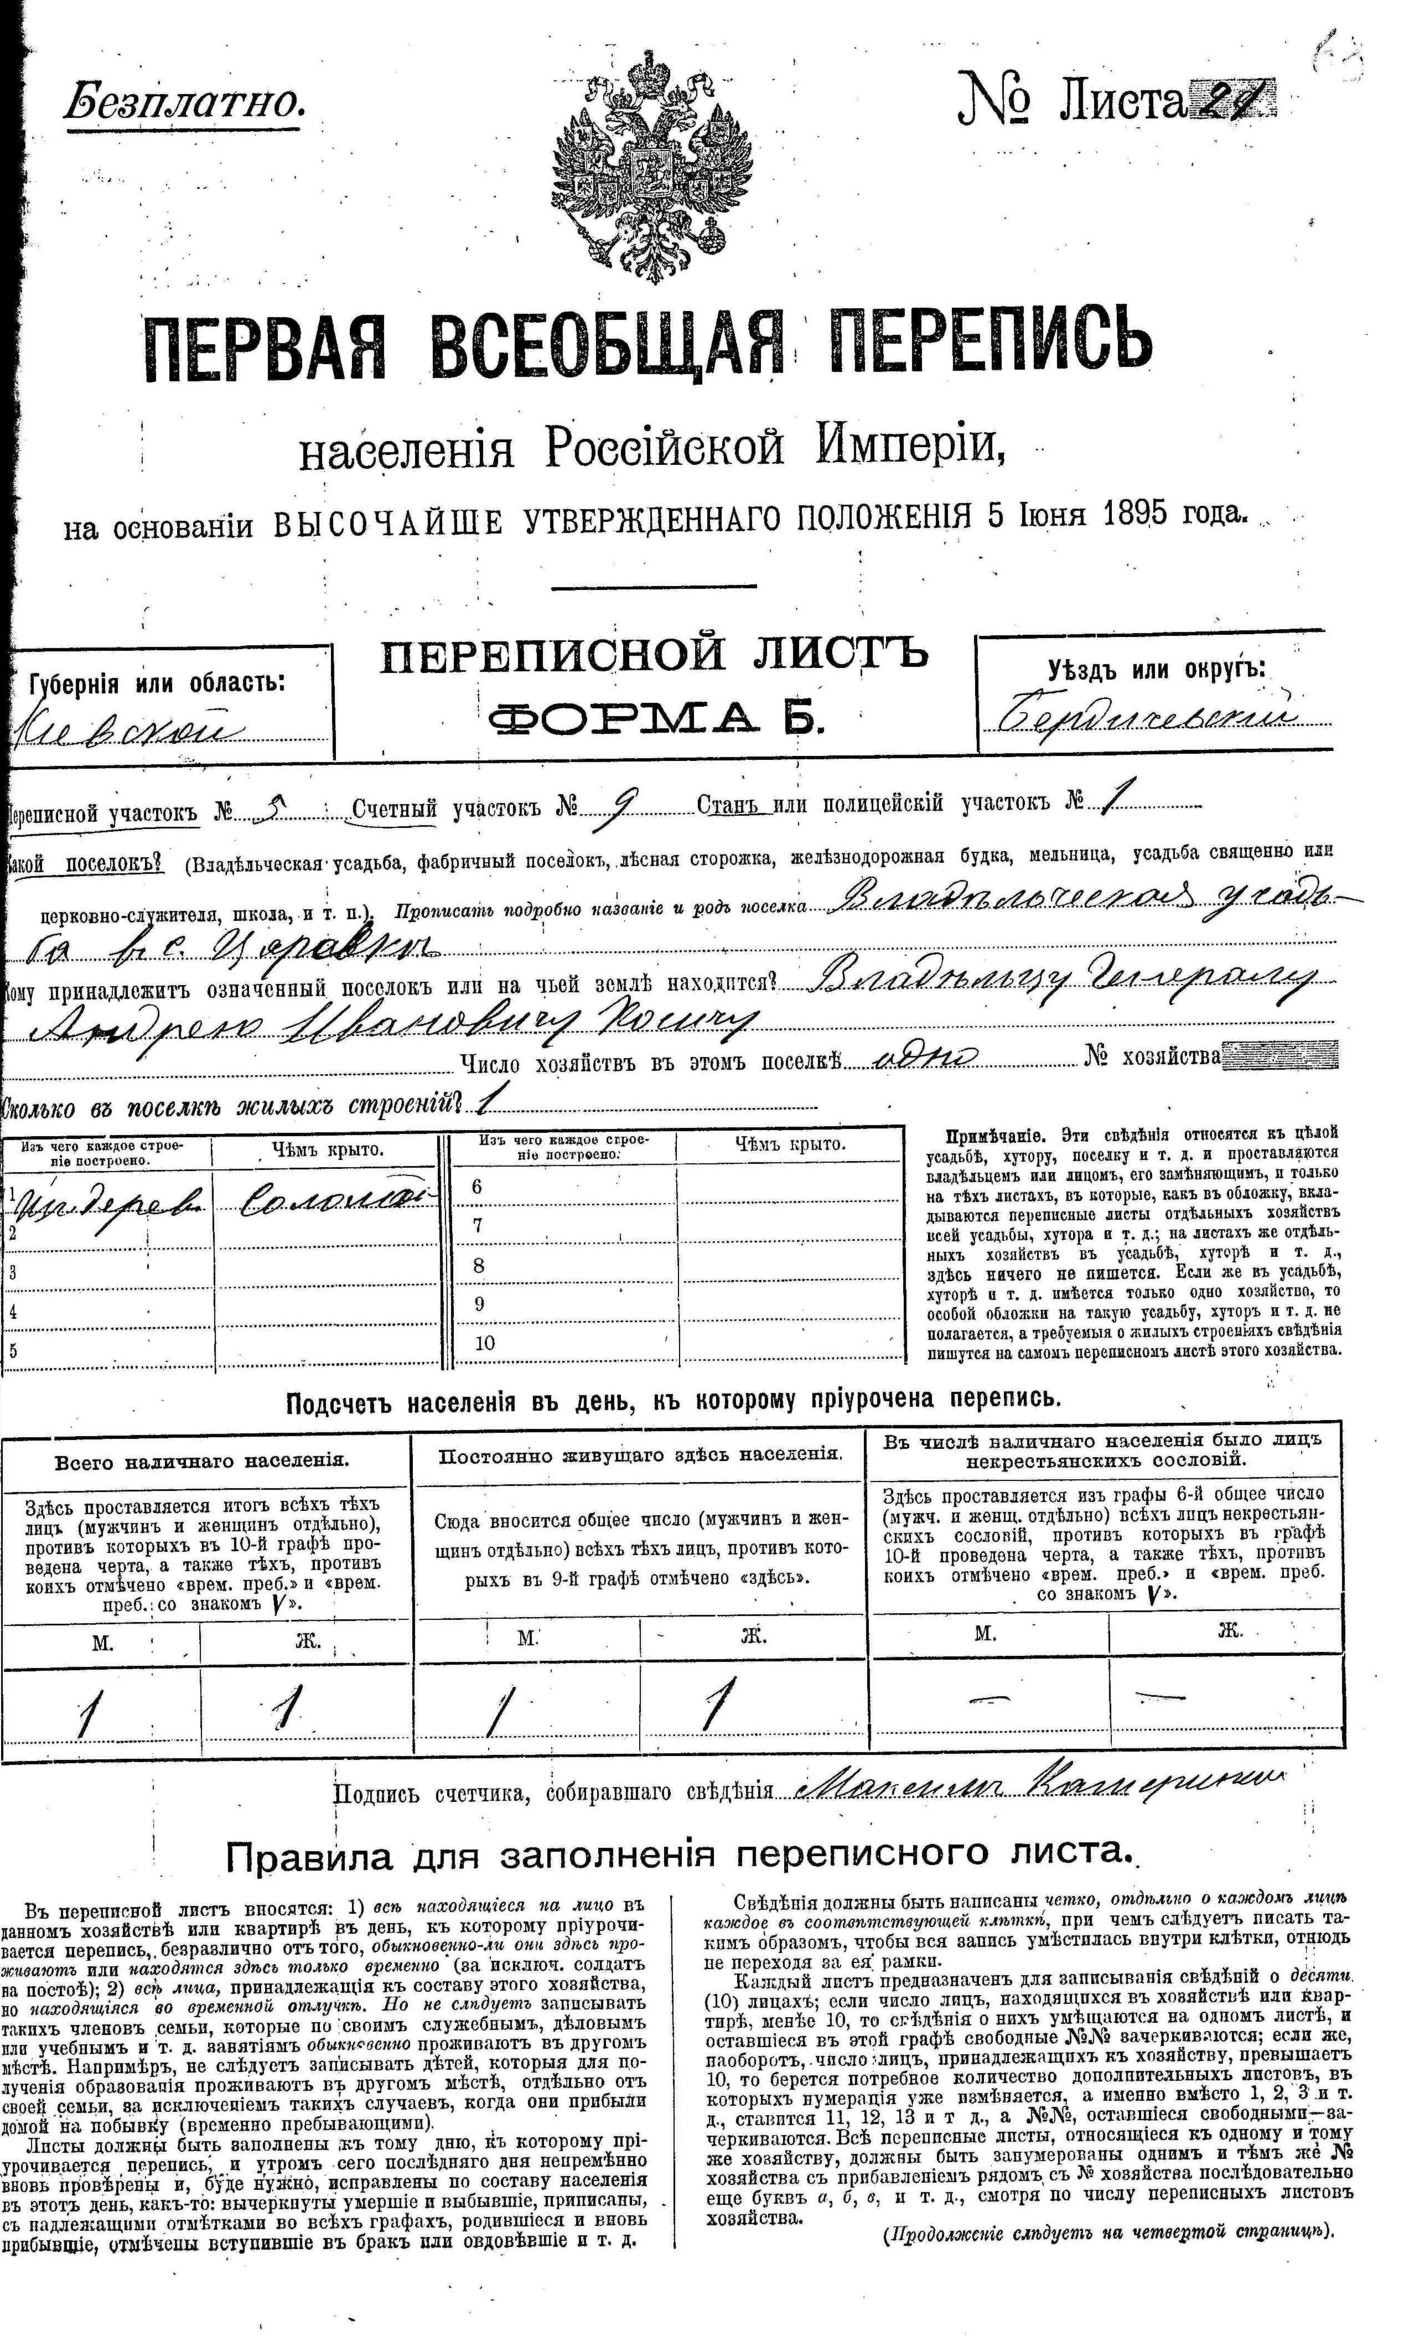 63
Безплатно.
№ Листа 21
ПЕРВАЯ ВСЕОБЩАЯ ПЕРЕПИСЬ
населенія Россійской Имперіи,
на основаніи ВЫСОЧАЙШЕ УТВЕРЖДЕННАГО ПОЛОЖЕНІЯ 5 Іюня 1895 года.
ПЕРЕПИСНОЙ ЛИСТЪ
ФОРМА Б.
Губернія или область:
Кіевской
Уѣздъ или округъ:
Бердичевскій
Переписной участокъ № 5 Счетный участокъ № 9 Станъ или полицейскій участокъ № 1
Какой поселокъ? (Владѣльческая усадьба, фабричный поселокъ, лѣсная сторожка, желѣзнодорожная будка, мельница, усадьба священно или
церковно-служителя, школа, и т. п.). Прописать подробно названіе и родъ поселка Владѣльческая усадь-
ба въ с.
Кому принадлежитъ означенный поселокъ или на чьей землѣ находится? Владѣльцу Генералу
Андрею Ивановичу Косичу
Число хозяйствъ въ этомъ поселкѣ одно № хозяйства
Сколько въ поселкѣ жилыхъ строеній? 1
Изъ чего каждое строе-
ніе построено.
Чѣмъ крыто.
Изъ чего каждое строе-
ніе построено.
Чѣмъ крыто.
1 Изъ дерев. Соломой
2
3
4
5
6
7
8
9
10
Примѣчаніе. Эти свѣдѣнія относятся къ цѣлой
усадьбѣ, хутору, поселку и т. д. и проставляются
владѣльцемъ или лицомъ, его замѣняющимъ, и только
на тѣхъ листахъ, въ которые, какъ въ обложку, вкла-
дываются переписные листы отдѣльныхъ хозяйствъ
всей усадьбы, хутора и т. д.; на листахъ же отдѣль-
ныхъ хозяйствъ въ усадьбѣ, хуторѣ и т. д.,
здѣсь ничего не пишется. Если же въ усадьбѣ,
хуторѣ и т. д. имѣется только одно хозяйство, то
особой обложки на такую усадьбу, хуторъ и т. д. не
полагается, а требуемыя о жилыхъ строеніяхъ свѣдѣнія
пишутся на самомъ переписномъ листѣ этого хозяйства.
Подсчетъ населенія въ день, къ которому пріурочена перепись.
Всего наличнаго населенія.
Здѣсь проставляется итогъ всѣхъ тѣхъ
лицъ (мужчинъ и женщинъ отдѣльно),
противъ которыхъ въ 10-й графѣ про-
ведена черта, а также тѣхъ, противъ
коихъ отмѣчено «врем. преб.» и «врем.
преб. со знакомъ V».
М. Ж.
1 1
Постоянно живущаго здѣсь населенія.
Сюда вносится общее число (мужчинъ и жен-
щинъ отдѣльно) всѣхъ тѣхъ лицъ, противъ кото-
рыхъ въ 9-й графѣ отмѣчено «здѣсь».
М. Ж.
1 1
Въ числѣ наличнаго населенія было лицъ
некрестьянскихъ сословій.
Здѣсь проставляется изъ графы 6-й общее число
(мужч. и женщ. отдѣльно) всѣхъ лицъ некрестьян-
скихъ сословій, противъ которыхъ въ графѣ
10-й проведена черта, а также тѣхъ, противъ
коихъ отмѣчено «врем. преб.» и «врем. преб.
со знакомъ V».
М. Ж.
— —
Подпись счетчика, собиравшаго свѣдѣнія
Правила для заполненія переписного листа.
Въ переписной листъ вносятся: 1) всѣ находящіеся на лицо въ
данномъ хозяйствѣ или квартирѣ въ день, къ которому пріурочи-
вается перепись, безразлично отъ того, обыкновенно-ли они здѣсь про-
живаютъ или находятся здѣсь только временно (за исключ. солдатъ
на постоѣ); 2) всѣ лица, принадлежащія къ составу этого хозяйства,
но находящіяся во временной отлучкѣ. Но не слѣдуетъ записывать
такихъ членовъ семьи, которые по своимъ служебнымъ, дѣловымъ
или учебнымъ и т. д. занятіямъ обыкновенно проживаютъ въ другомъ
мѣстѣ. Напримѣръ, не слѣдуетъ записывать дѣтей, которыя для по-
лученія образованія проживаютъ въ другомъ мѣстѣ, отдѣльно отъ
своей семьи, за исключеніемъ такихъ случаевъ, когда они прибыли
домой на побывку (временно пребывающими).
Листы должны быть заполнены къ тому дню, къ которому прі-
урочивается перепись, и утромъ сего послѣдняго дня непремѣнно
вновь провѣрены и, буде нужно, исправлены по составу населенія
въ этотъ день, какъ-то: вычеркнуты умершіе и выбывшіе, приписаны,
съ надлежащими отмѣтками во всѣхъ графахъ, родившіеся и вновь
прибывшіе, отмѣчены вступившіе въ бракъ или овдовѣвшіе и т. д.
Свѣдѣнія должны быть написаны четко, отдѣльно о каждомъ лицѣ
каждое въ соотвѣтствующей клѣткѣ, при чемъ слѣдуетъ писать та-
кимъ образомъ, чтобы вся запись умѣстилась внутри клѣтки, отнюдь
не переходя за ея рамки.
Каждый листъ предназначенъ для записыванія свѣдѣній о десяти
(10) лицахъ; если число лицъ, находящихся въ хозяйствѣ или квар-
тирѣ, менѣе 10, то свѣдѣнія о нихъ умѣщаются на одномъ листѣ, и
оставшіеся въ этой графѣ свободные №№ зачеркиваются; если же,
наоборотъ, число лицъ, принадлежащихъ къ хозяйству, превышаетъ
10, то берется потребное количество дополнительныхъ листовъ, въ
которыхъ нумерація уже измѣняется, а именно вмѣсто 1, 2, 3 и т.
д., ставится 11, 12, 13 и т д., а №№, оставшіеся свободными—за-
черкиваются. Всѣ переписные листы, относящіеся къ одному и тому
же хозяйству, должны быть занумерованы однимъ и тѣмъ же №
хозяйства съ прибавленіемъ рядомъ съ № хозяйства послѣдовательно
еще буквъ а, б, в, и т. д., смотря по числу переписныхъ листовъ
хозяйства.
(Продолженіе слѣдуетъ на четвертой страницѣ).